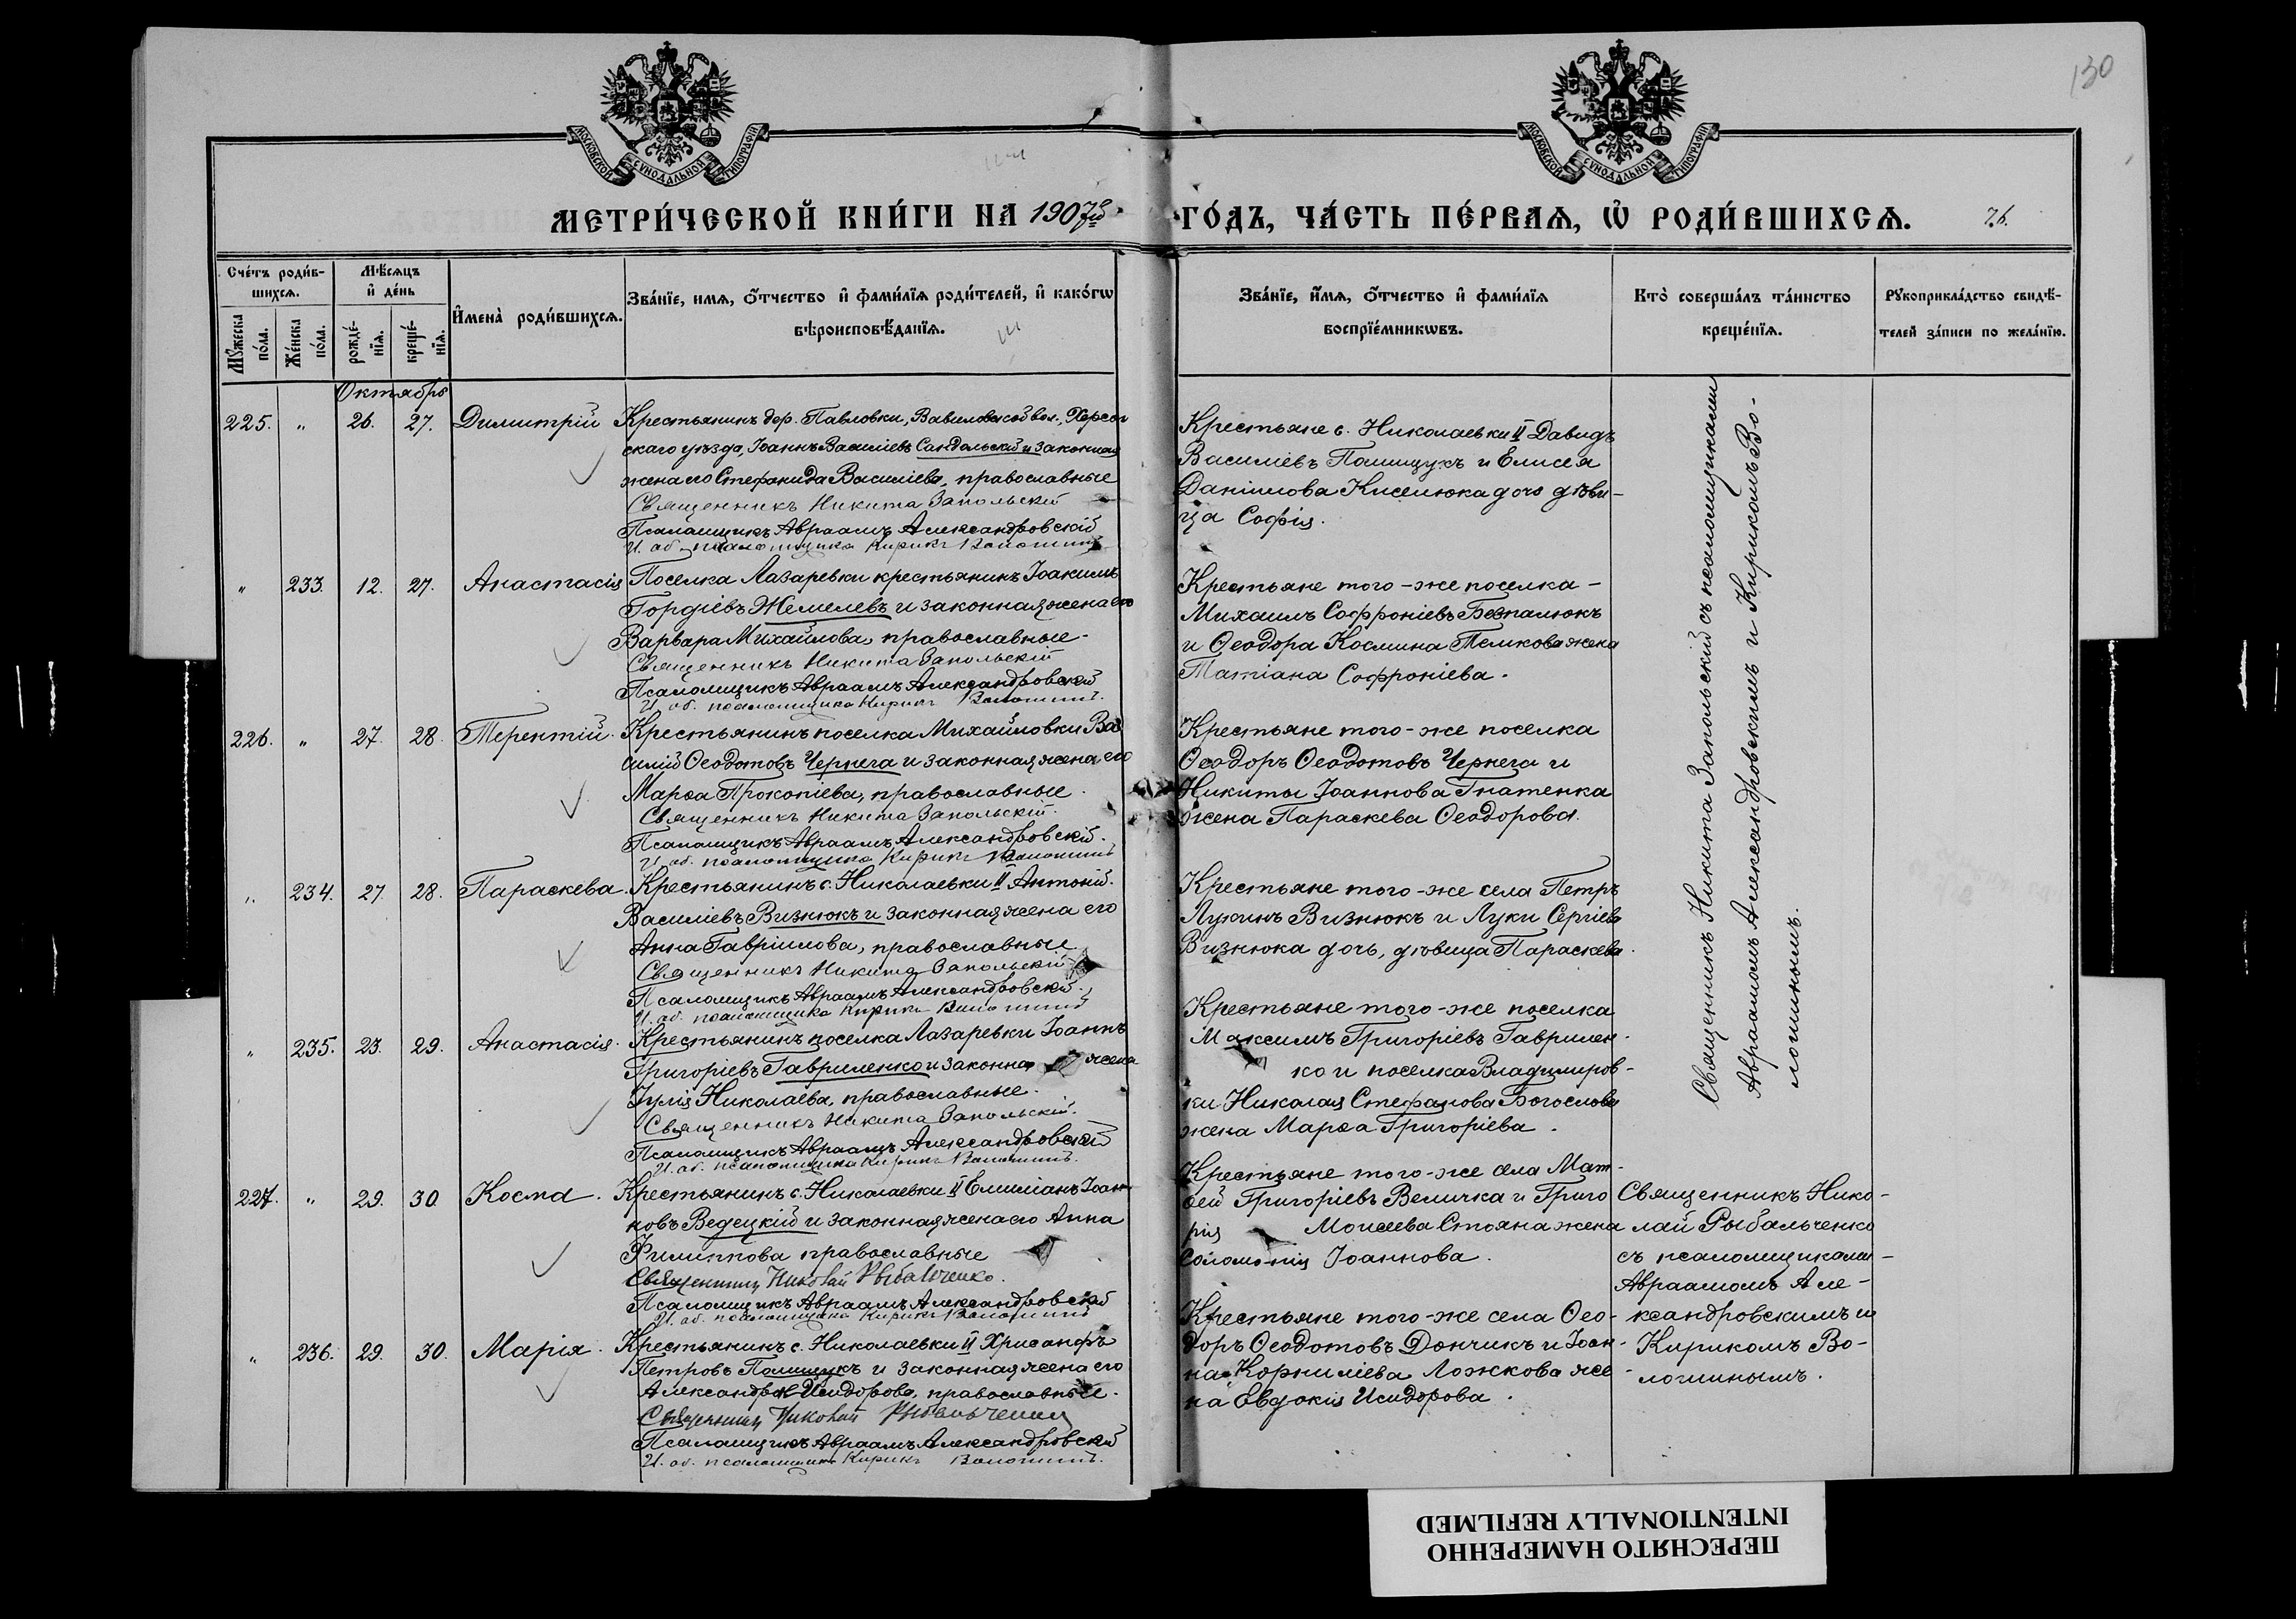 130
МОСКОВСКОЙ СѴНОДАЛЬНОЙ ТИПОГРАФІИ
МОСКОВСКОЙ СѴНОДАЛЬНОЙ ТИПОГРАФІИ
МЕТРИ́ЧЕСКОЙ КНИ́ГИ НА 1907й ГО́ДЪ, ЧА́СТЬ ПЕ́РВАѦ, Ѡ҆ РОДИ́ВШИХСѦ.
76.
Сче́тъ роди́в-
шихсѧ.
Мѹ́жеска по́ла.
Же́нска по́ла.
Мѣ́сѧцъ
и҆ де́нь
рожде́-
нїѧ.
креще́-
нїѧ.
И҆мена̀ роди́вшихсѧ.
Зва́нїе, имѧ, ѻ҆́тчество и҆ фами́лїѧ роди́телей, и҆ како́гѡ
вѣроисповѣ́данїѧ.
Зва́нїе, и҆́мѧ, ѻ҆́тчество и҆ фами́лїѧ
воспрїе́мникѡвъ.
Кто̀ соверша́лъ та́инство
креще́нїѧ.
Рѹкоприкла́дство свидѣ́-
телей за́писи по жела́нїю.
Октябрь
225. " 26. 27. Димитрій
Крестьянинъ дер. Павловки, Вавиловской вол., Херсон
скаго уѣзда, Іоаннъ Василіевъ Сандальскій и законная
жена его Стефанида Василіева, православные
Священникъ Никита Запольскій
Псаломщикъ Авраамъ Александровскій
И. об. псаломщика Кирикъ Волошинъ
Крестьяне с. Николаевки II Давидъ
Василіевъ Полищукъ и Елисея
Даніилова Киселюка дочь дѣви-
ца Софія.
" 233. 12. 27. Анастасія
Поселка Лазаревки крестьянинъ Іоакимъ
Гордіевъ Жемелевъ и законная жена его
Варвара Михайлова, православные.
Священникъ Никита Запольскій
Псаломщикъ Авраамъ Александровскій
И. об. псаломщика Кирикъ Волошинъ.
Крестьяне того-же поселка-
Михаилъ Софроніевъ Безпалюкъ
и Ѳеодора Космина Темкова жена
Татіана Софроніева.
226. " 27. 28. Терентій.
Крестьянинъ поселка Михайловки Ва
силій Ѳеодотовъ Чернега и законная жена его
Марѳа Прокопіева, православные.
Священникъ Никита Запольскій.
Псаломщикъ Авраамъ Александровскій.
И. об. псаломщика Кирикъ Волошинъ
Крестьяне того-же поселка
Ѳеодоръ Ѳеодотовъ Чернега и
Никиты Іоаннова Гнатенка
жена Параскева Ѳеодорова.
" 234. 27. 28. Параскева.
Крестьянинъ с. Николаевки II Антоній.
Василіевъ Визнюкъ и законная жена его
Анна Гавріилова, православные
Священникъ Никита Запольскій
Псаломщикъ Авраамъ Александровскій.
И. об. псаломщика Кирикъ Волошинъ
Крестьяне того-же села Петръ
Лукинъ Визнюкъ и Луки Сергіева
Визнюка дочь, дѣвица Параскева.
" 235. 23. 29. Анастасія.
Крестьянинъ поселка Лазаревки Іоаннъ
Григоріевъ Гавриленко и законная жена
Іулія Николаева, православные.
Священникъ Никита Запольскій.
Псаломщикъ Авраамъ Александровскій
И. об. псаломщика Кирикъ Волошинъ.
Крестьяне того-же поселка
Максимъ Григоріевъ Гаврилен-
ко и поселка Владиміров-
ки Николая Стефанова Богослова
жена Марѳа Григоріева.
Священникъ Никита Запольскій съ псаломщиками
Авраамомъ Александровскимъ и Кирикомъ Во-
лошинымъ.
227. " 29. 30. Косма.
Крестьянинъ с. Николаевки II Емиліанъ Іоан-
новъ Ведецкій и законная жена его Анна
Филиппова православные
Священникъ Николай Рыбальченко.
Псаломщикъ Авраамъ Александровскій
И. об. псаломщика Кирикъ Волошинъ
Крестьяне того-же села Мат-
ѳей Григоріевъ Величка и Григо
рія Моисеева Стояна жена
Соломонія Іоаннова.
Священникъ Нико-
лай Рыбальченко
съ псаломщиками-
Авраамомъ Але-
ксандровскимъ и
Кирикомъ Во-
лошинымъ.
" 236. 29. 30. Марія.
Крестьянинъ с. Николаевки II Хрисанфъ
Петровъ Полищукъ и законная жена его
Александра Исидорова, православные.
Священникъ Николай Рыбальченко
Псаломщикъ Авраамъ Александровскій
И. об. псаломщика Кирикъ Волошинъ.
Крестьяне того-же села Ѳео-
доръ Ѳеодотовъ Дончикъ и Іоан-
на Корниліева Ложкова же-
на Евдокія Исидорова.
ПЕРЕСНЯТО НАМЕРЕННО
INTENTIONALLY REFILMED